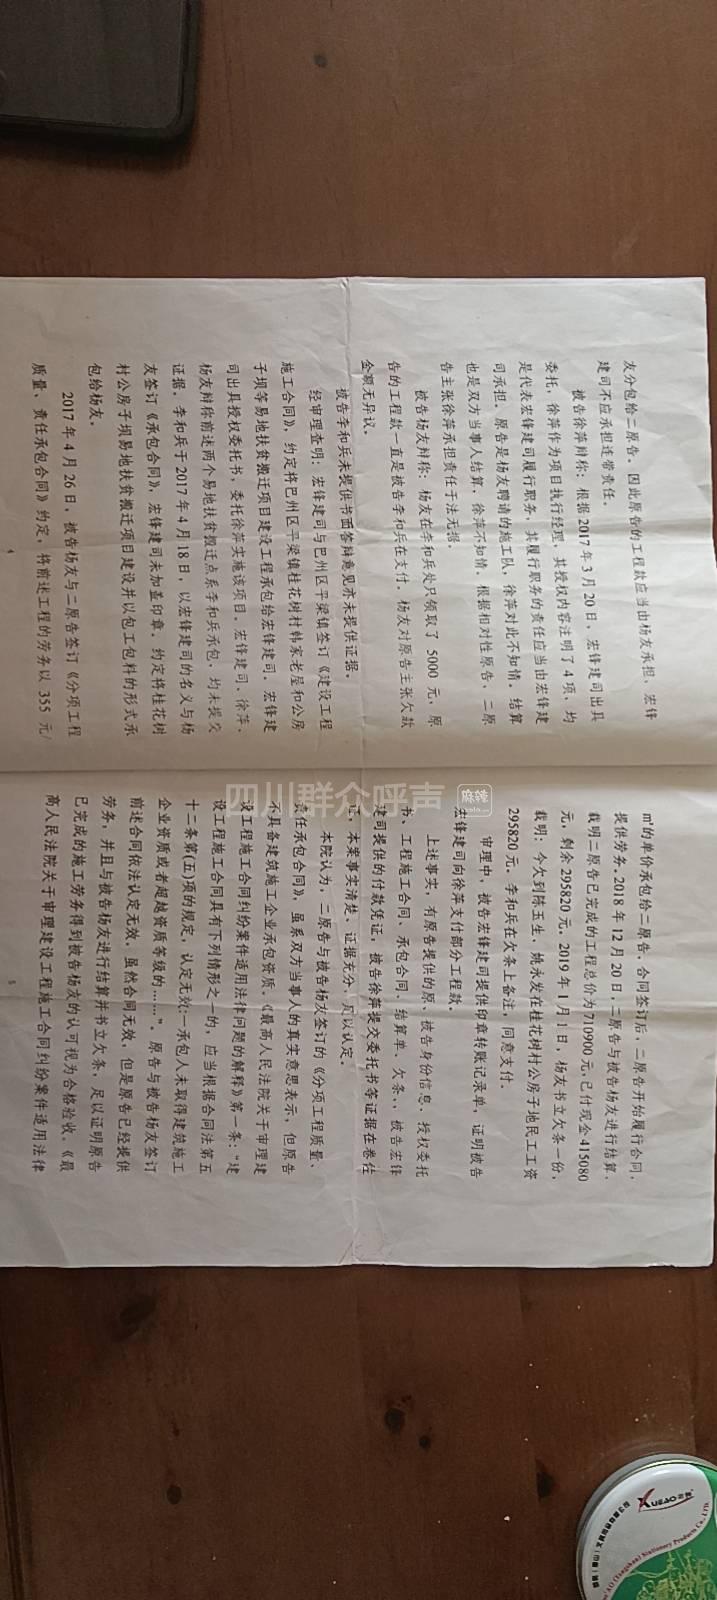 友分包给二原告。因此原告的工程款应当由杨友承担，宏锋
建司不应承担连带责任。
被告徐萍辩称：根据 2017 年 3 月 20 日，宏锋建司出具
委托，徐萍作为项目执行经理，其授权内容注明了 4 项，均
是代表宏锋建司履行职务，其履行职务的责任应当由宏锋建
司承担。原告是杨友聘请的施工队，徐萍对此不知情。结算
也是双方当事人结算，徐萍不知情，根据相对性原告，二原
告主张徐萍承担责任于法无据。
被告杨友辩称：杨友在李和兵处只领取了 5000 元，原
告的工程款一直是被告李和兵在支付，杨友对原告主张欠款
金额无异议。
被告李和兵未提供书面答辩意见亦未提供证据。
经审理查明：宏锋建司与巴州区平梁镇签订《建设工程
施工合同》，约定将巴州区平梁镇桂花树村韩家老屋和公房
子坝等易地扶贫搬迁项目建设工程承包给宏锋建司，宏锋建
司出具授权委托书，委托徐萍实施该项目。宏锋建司、徐萍、
杨友辩称前述两个易地扶贫搬迁点系李和兵承包，均未提交
证据。李和兵于 2017 年 4 月 18 日，以宏锋建司的名义与杨
友签订《承包合同》，宏锋建司未加盖印章，约定将桂花树
村公房子坝易地扶贫搬迁项目建设并以包工包料的形式承
包给杨友。
2017 年 4 月 26 日，被告杨友与二原告签订《分项工程
质量、责任承包合同》约定，将前述工程的劳务以 355 元/
4
㎡的单价承包给二原告。合同签订后，二原告开始履行合同，
提供劳务。2018 年 12 月 20 日，二原告与被告杨友进行结算，
载明二原告已完成的工程总价为 710900 元，已付现金 415080
元，剩余 295820 元。2019 年 1 月 1 日，杨友书立欠条一份，
载明：今欠到陈玉生、姚永发在桂花树村公房子地民工工资
295820 元。李和兵在欠条上备注，同意支付。
审理中，被告宏锋建司提供印章转账记录单，证明被告
宏锋建司向徐萍支付部分工程款。
上述事实，有原告提供的原、被告身份信息、授权委托
书、工程施工合同、承包合同、结算单、欠条、，被告宏锋
建司提供的付款凭证，被告徐萍提交委托书等证据在卷佐
证，本案事实清楚，证据充分，足以认定。
本院认为，二原告与被告杨友签订的《分项工程质量、
责任承包合同》，虽系双方当事人的真实意思表示，但原告
不具备建筑施工企业承包资质。《最高人民法院关于审理建
设工程施工合同纠纷案件适用法律问题的解释》第一条：“建
设工程施工合同具有下列情形之一的，应当根据合同法第五
十二条第(五)项的规定，认定无效:一承包人未取得建筑施工
企业资质或者超越资质等级的……”。原告与被告杨友签订
前述合同依法认定无效。虽然合同无效，但是原告已经提供
劳务，并且与被告杨友进行结算并书立欠条，足以证明原告
已完成的施工劳务得到被告杨友的认可视为合格验收。《最
高人民法院关于审理建设工程施工合同纠纷案件适用法律
5
四川群众呼声